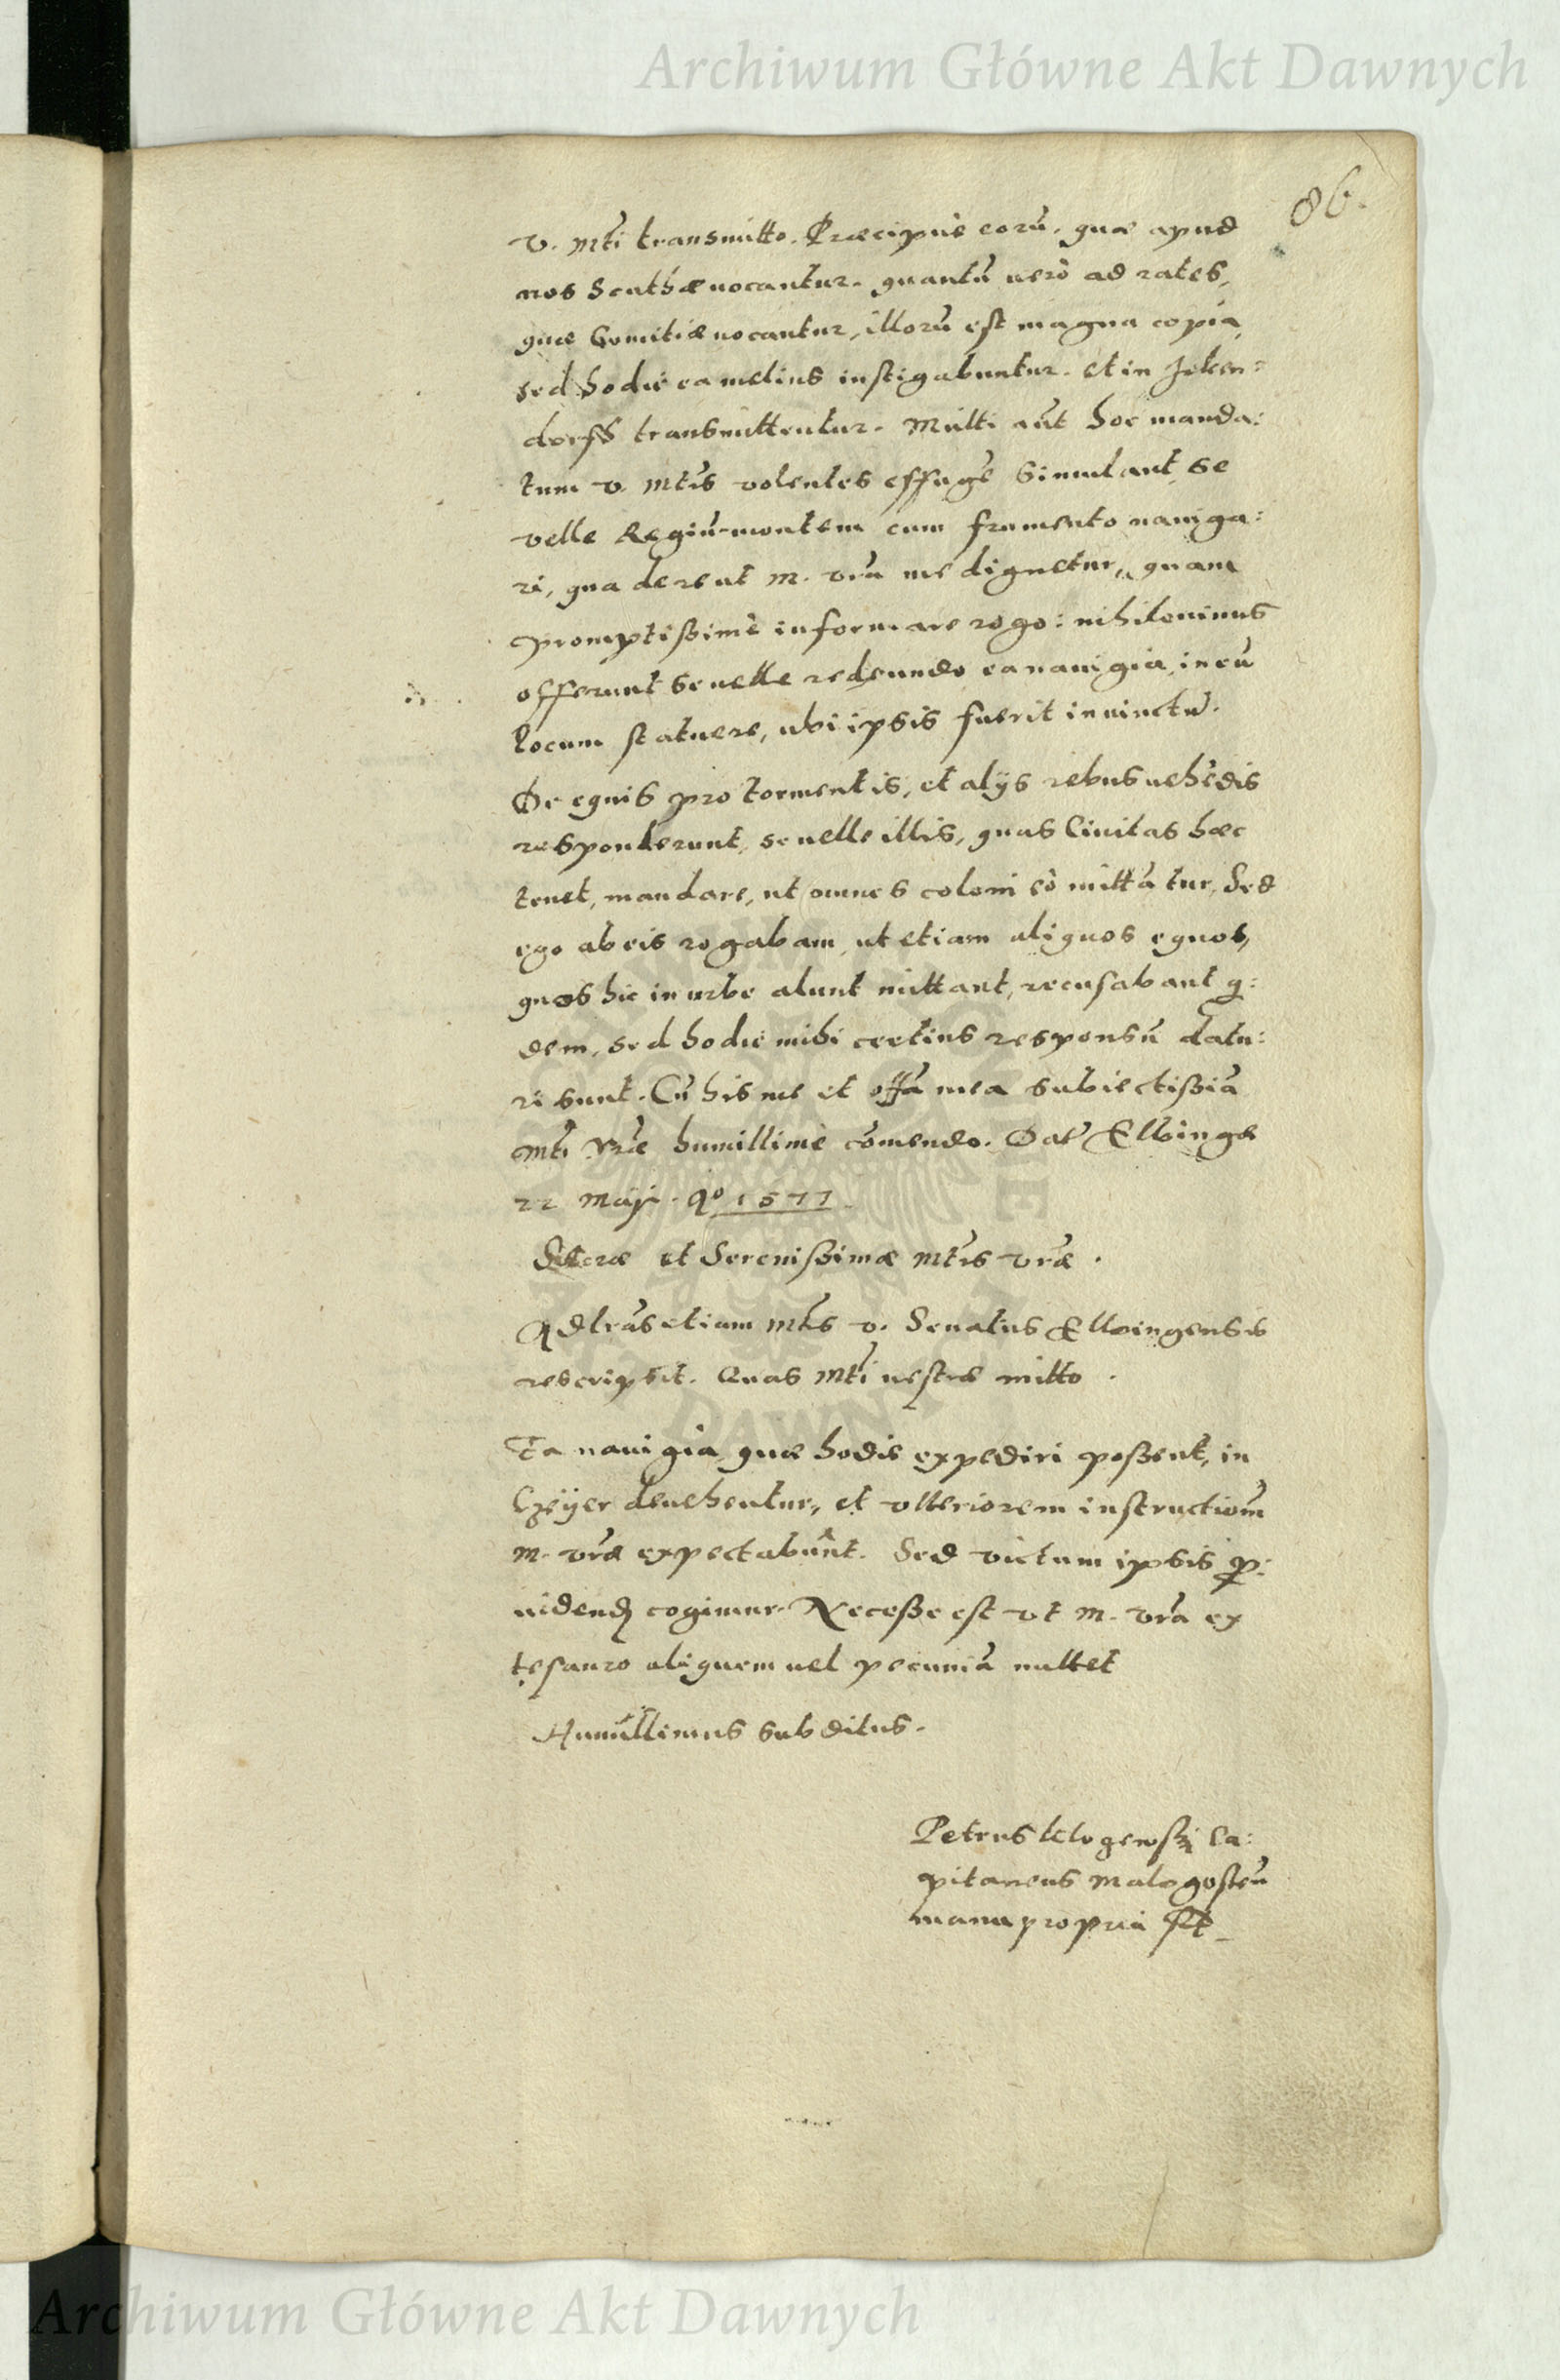 Archiwum Główne Akt Dawnych
86.
V. Mti transmitto. Præcipuè eorū. quæ apud
nos Scuthæ uocantur. quantū uerò ad rates,
quæ Comitiæ uocantur, illorū est magna copia,
sed hodie ea melius instigabuntur. et in
dorff transmittentur. Multi aūt hoc manda:
tum V. Mtis volentes effugē simulant se
velle Regiū-montem cum frumento nauiga:
ri, qua de re ut M. vra me dignetur, quam
promptißimè informare rogo: nihilominus
offerunt se uelle redeundo ea nauigia, in eū
locum statuere, ubi ipsis fuerit iniunctū.
De equis pro tormentis, et alijs rebus uehēdis
responderunt, se uelle illis, quas Ciuitas hæc
tenet, mandare, ut omnes coloni eò mittātur, Sed
ego ab eis rogabam, ut etiam aliquos equos,
quos hic in urbe alunt mittant, recusabant q:
dem, sed hodie mihi certius responsū datu:
ri sunt. Cū his me et offā mea subiectißiā
Mti vræ humillimè cōmendo. Dat Elbingæ
22 Maij. Ao 1577
Sacræ et Serenißimæ Mtis vræ.
Ad lrās etiam Mtis v. Senatus Elbingensis
rescripsit. Quas Mti uestræ mitto.
Ea nauigia quæ hodie expediri poßent, in
deuehentur, et vlteriorem instructiom
M. vræ expectabunt. Sed victum ipsis p:
uidend cogimur. Neceße est vt M. vra ex
tesauro aliquem uel pecuniā mittet
Humillimus subditus.
Petrus Klogenski Ca:
pitaneus Malogosteñ
manu propria
Archiwum Główne Akt Dawnych